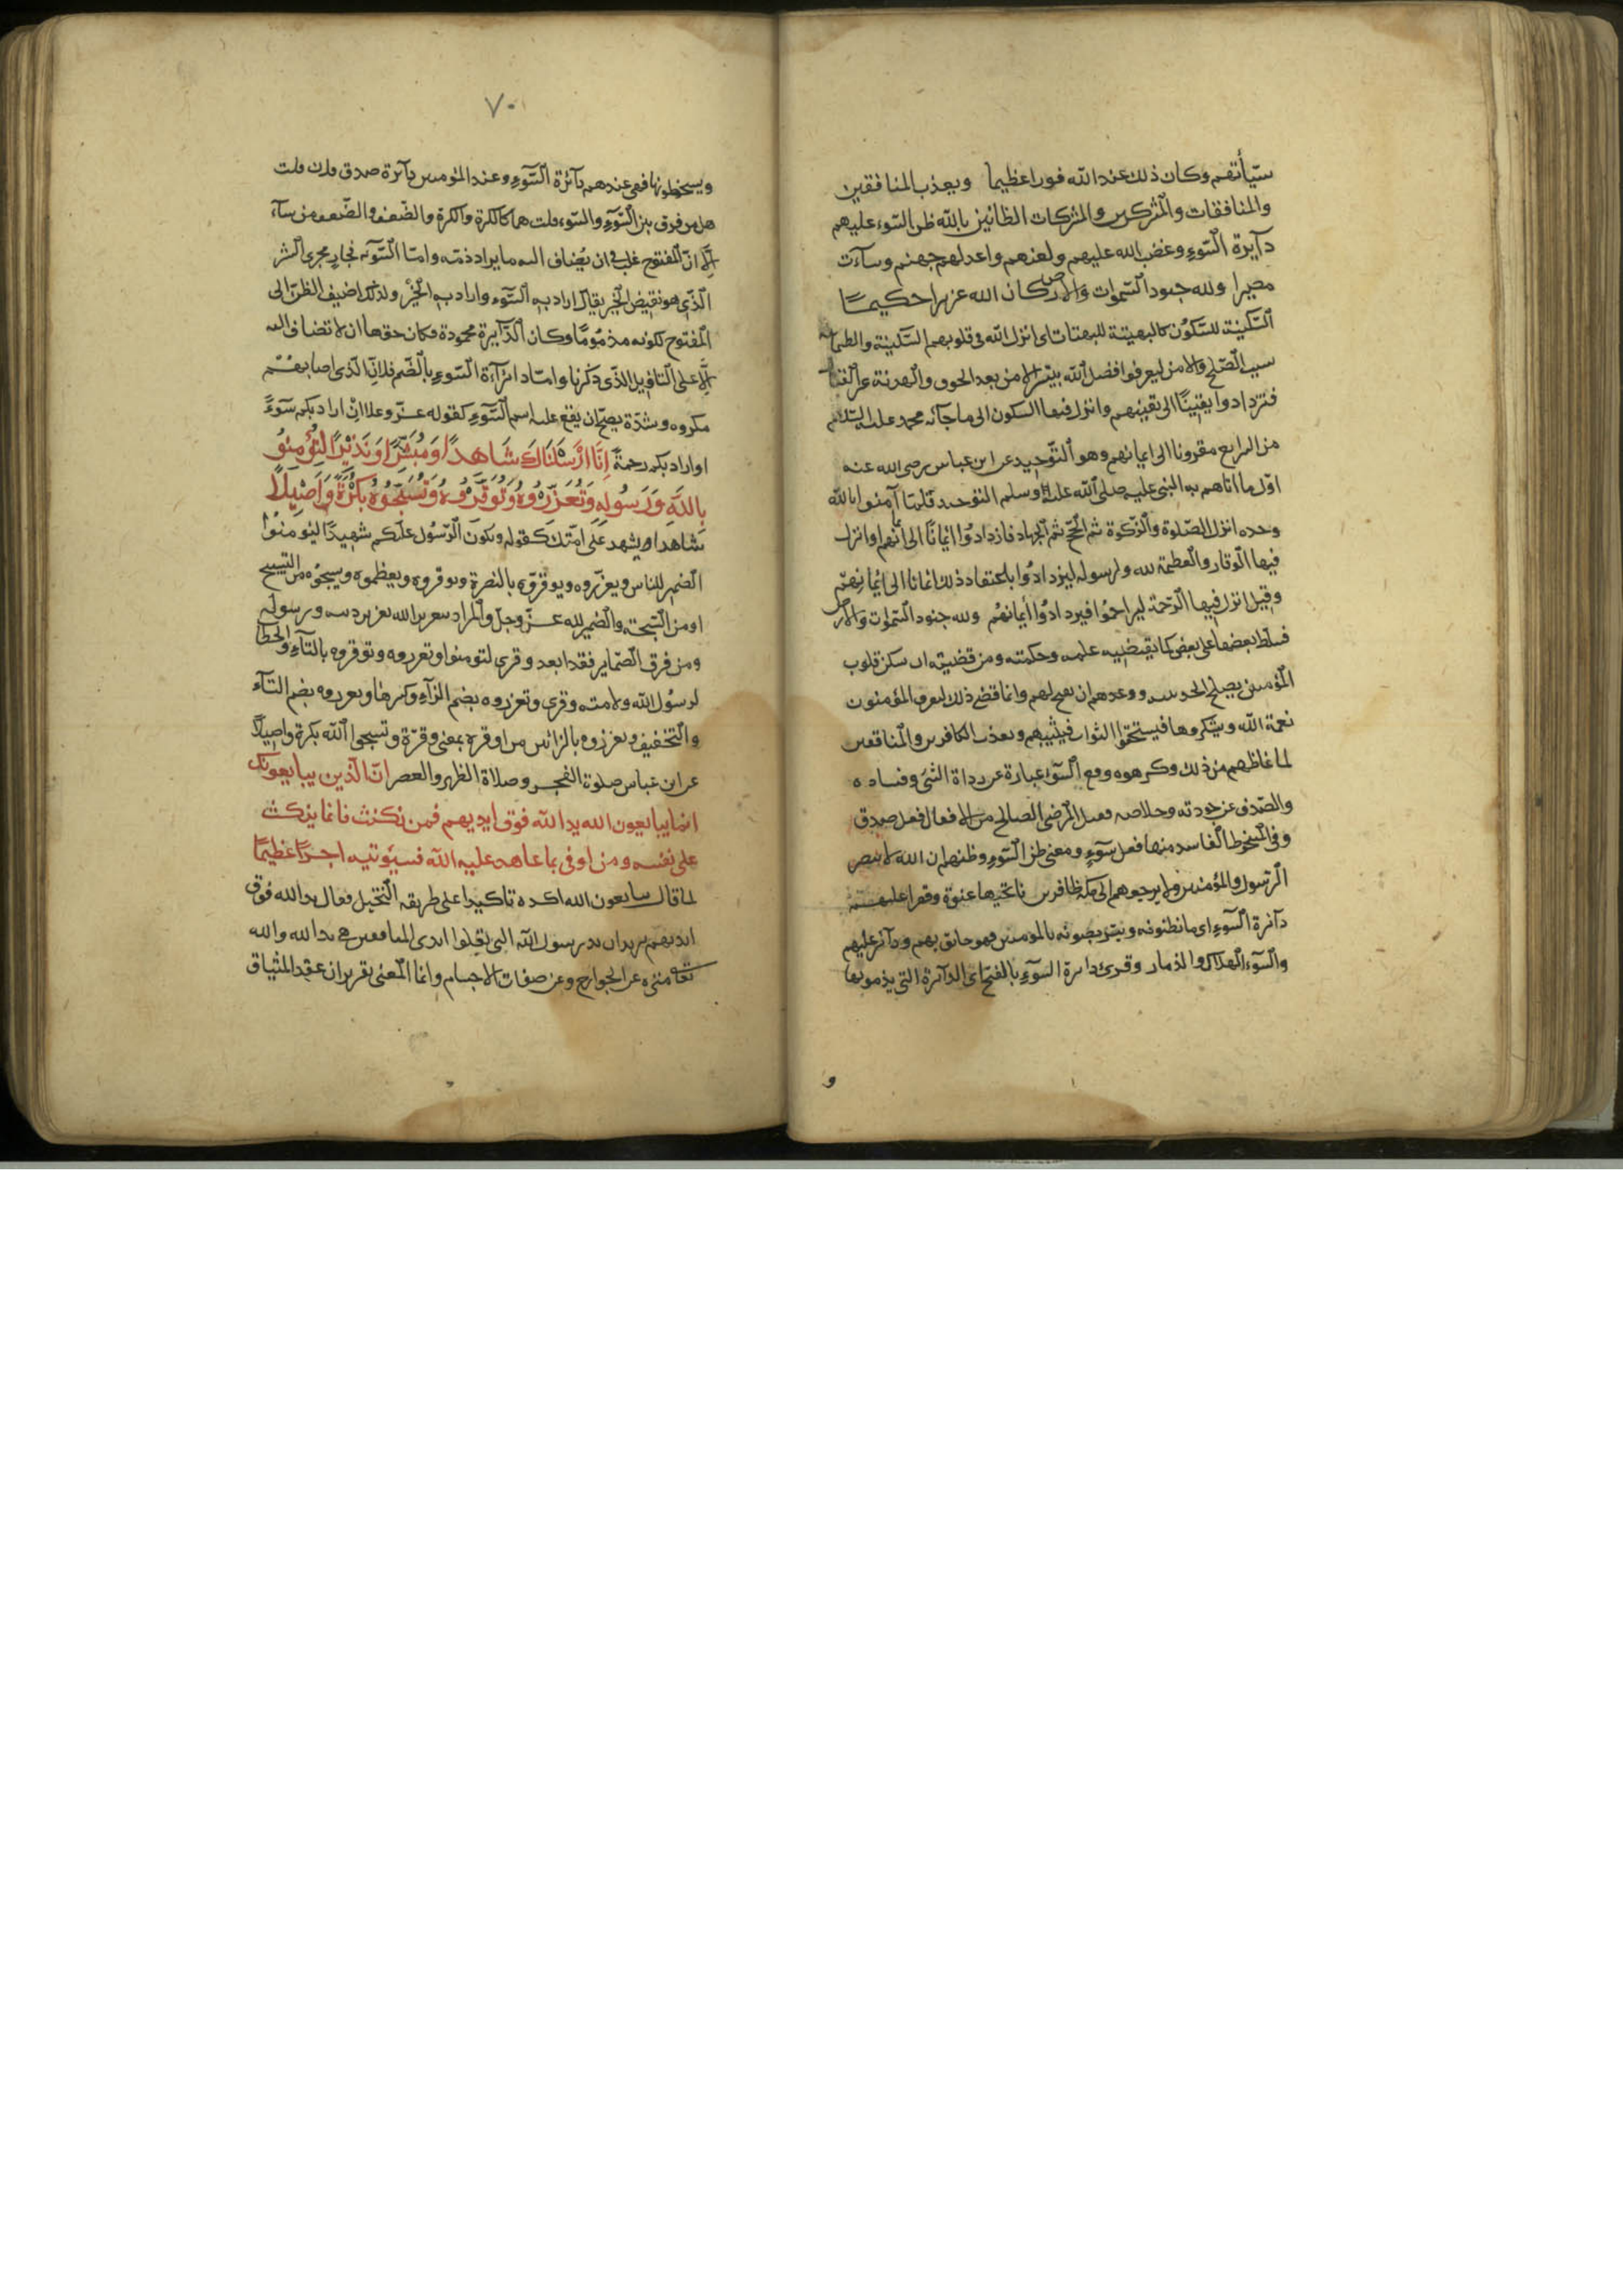 سيّأتهم وكان ذلك عند الله فوزا عظيما ويعذب المنافقين
والمنافقات والمشركين والمشركات الظانين بالله ظن السوء عليهم
دآيرة السّوءِ وغضب الله عليهم ولعنهم واعد لهم جهنم وسآءت
مصيرا ولله جنود السّموات والارض وكان الله عزيزا حكيمًا
السّكينة للسّكون كالبهيتة للبهتان اى انزل الله فى قلوبهم السّكينة والطمانينة
سبب الصّلح والامن ليعرفوا فضل الله بتيسير الامن بعد الخوف والهدنة غب القتال
فتزدادوا يقينًا الى يقينهم وانزل فيها السكون الى ما جآء به محمد عليه السّلام
من الشرايع مقرونا الى ايمانهم وهو التّوحيد عن ابن عباس رضى الله عنه
اوّل ما اتاهم به النبى صلى الله عليه وسلم التوحيد فلمّا آمنوا بالله
وحده انزل الصّلوة والزّكوة ثم الحجّ ثم الجهاد فازدادوا ايمانًا الى ايمانهم او انزل
فيها الوقار والعظمة لله ولرسوله ليزدادوا باعتقاد ذلك ايمانا الى ايمانهم
وقيل انزل فيها الرّحمة ليتراحموا فيزدادوا ايمانهم ولله جنود السّموات والارض
فسلّط بعضها على بعض كما يقتضيه علمه وحكمته ومن قضيته ان سكن قلوب
المؤمنين بصلح الحديبية ووعدهم ان يفتح لهم وانما قضى ذلك ليعرف المؤمنون
نعمة الله ويشكروها فيستحقوا الثواب فيثيبهم ويعذب الكافرين والمنافقين
لما غاظهم من ذلك وكرهوه وقع السّوء عبارة عن رداة الشئ وفساده
والصّدق عن جودته وصلاحه فقيل المرضى الصالح من الافعال فعل صدق
وفى المسخوط الفاسد منها فعل سَوْءٍ ومعنى ظن السّوءِ وظنهم ان الله لا ينصر
الرّسول والمؤمنين ولا يرجعهم الى مكة ظافرين فاتحيها عنوة وقهرا عليهم
دآئرة السّوءِ اى ما يظنونه ويتربصونه بالمومنين فهو حائق بهم ودآئر عليهم
والسّوء الهلاك والدمار وقرئ دائرة السّوءِ بالفتح اى الدّآئرة التى يذمونها
و
٧٠
ويسخطونها فهى عندهم دآئرة السّوءِ وعند المؤمنين دآئرة صدق فان قلت
هل من فرق بين السُّوءِ والسَّوء قلت هما كالكره والكره والضّعف والضّعف من سآء
إلّا انّ المفتوح غلب فى ان يُضاف اليه ما يراد ذمّه وامّا السّوء فجارٍ مجرى الشر
الذى هو نقيض الخير يقال اراد به السّوء واراد به الخيرْ ولذلك اضيف الظنّ الى
المفتوح لكونه مذمومًا وكان الدّآيرة محمودة فكان حقها ان لا تضاف اليه
إلّا على التاويل الذى ذكرنا وامّا دائرة السّوءِ بالضّم فلانّ الذى اصابهُم
مكروه وشدّة يصحّ ان يقع عليه اسم السّوءِ كقوله عزّ وعلا ان اراد بكم سوءً
او اراد بكم رحمةً اِنَّا اَرْسَلْنَاكَ شَاهِدًا وَمُبَشِّرًا وَنَذِيْرًا لِتُؤْمِنُو
بِاللّهِ وَرَسُولِهِ وَتُعَزِّرُوهُ وَتُوَقِّرُوهُ وَتُسَبِّحُوهُ بُكْرَةً وَاَصِيْلًا
شاهدا ويشهد على امّتك كقوله ويكون الرّسُول عليكم شهيدًا ليؤمنوا
الضمير للناس ويعزّروه ويقوّوه بالنصرة ويوقروه ويعظموه ويسبحوه من التّسبيح
او من السّبحة والضمير لله عزّ وجلّ والمراد بتعزير الله تعزير دينه ورسوله
ومن فرق الضّماير فقد ابعد وقرى لتومنوا وتعزروه وتوقروه بالتآءِ والخطاب
لرسول الله ولامته وقرى وتعزروه بضم الزآءِ وكسرها وتعزروه بضم التآء
والتخفيف وتعززوه بالزائين من اوقره بمعنى وقرّه وتسبحوا الله بكرة واصيلًا
عن ابن عباس صلوة الفجر وصلاة الظهر والعصر انّ الذين يبايعونك
انما يبايعون الله يد الله فوق ايديهم فمن نكث فانما ينكث
على نفسه ومن اوفى بما عاهد عليه الله فسيؤتيه اجرًا عظيمًا
لما قال يبايعون الله اكده تاكيدا على طريقة التخيل فقال يد الله فوق
ايديهم يريد ان يد رسول الله التى تعلوا ايدى المبايعين هى يد الله والله
تعا منزه عن الجوارح وعن صفات الاجسام وانما المعنى تقرير ان عقد الميثاق